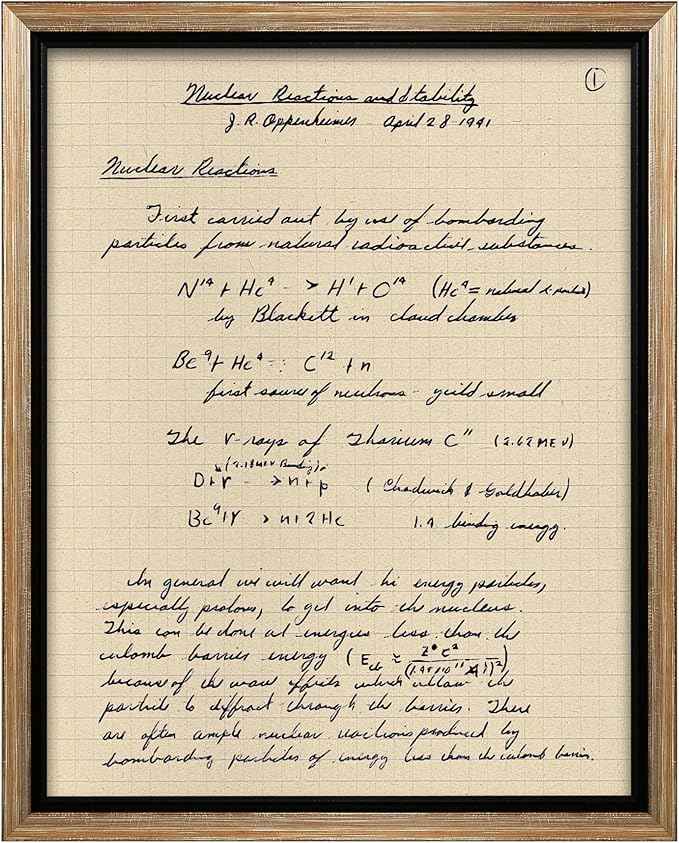 ①
Nuclear Reactions and Stability
J. R. Oppenheimer April 28 1941
Nuclear Reactions
First carried out by use of bombarding
particles from natural radioactive substances.
N¹⁴ + He⁴ -> H¹ + O¹⁷ (He⁴ = natural α-particles)
by Blackett in cloud chamber
Be⁹ + He⁴ -> C¹² + n
first source of neutrons - yield small
The γ-rays of Thorium C" (2.62 MEV)
(2.18 MEV Binding)
D + γ -> n + p (Chadwick & Goldhaber)
Be⁹ + γ -> n + 2 He binding energy.
In general we will want hi energy particles,
especially protons, to get into the nucleus.
This can be done at energies less than the
culomb barrier energy (
because of the wave effects which allow the
particle to diffract through the barrier. There
are often ample nuclear reactions produced by
bombarding particles of energy less than the culomb barrier.